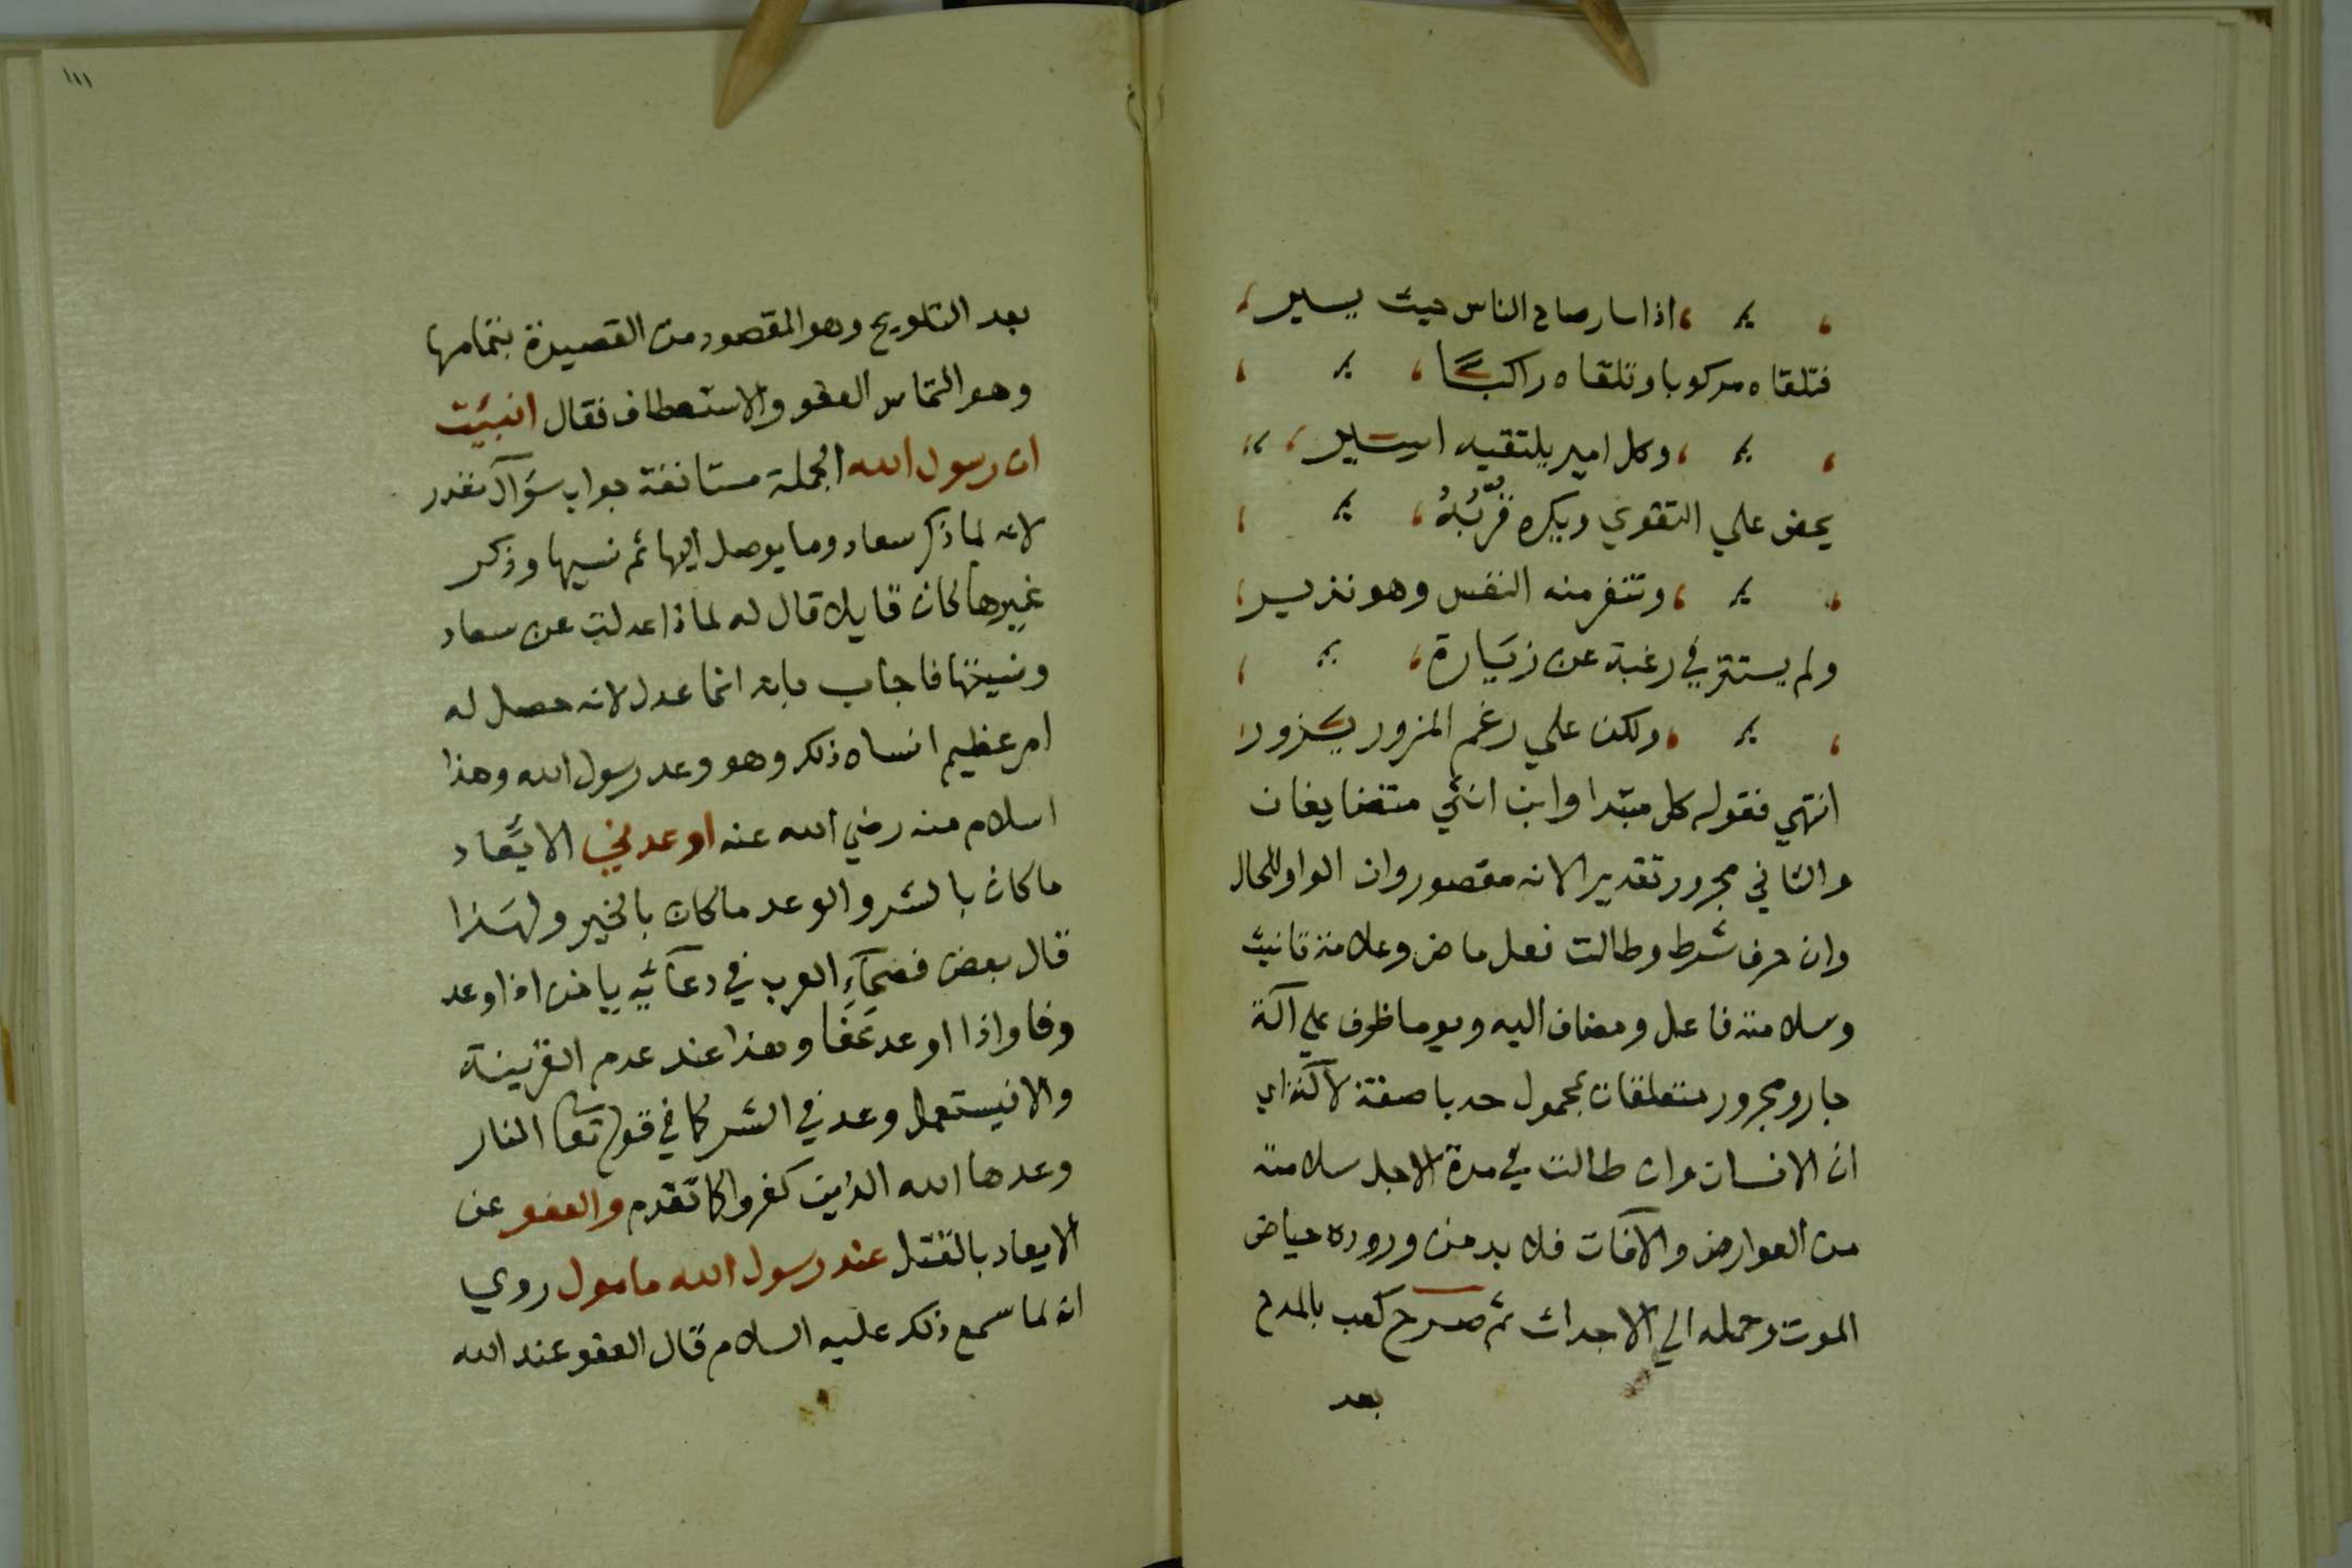 اذا سار صاح الناس حيث يسير
فتلقاه مركوبا وتلقاه راكبًا
وكل امير يلتقيه اسير
يحض علي التقوي ويكره قربُهُ
وتنفر منه النفس وهو نذير
ولم يستتر في رغبة عن زيارة
ولكن علي رغم المزور يزور
انتهي فقوله كل مبتدا وابن انثي متضايفان
والثاني مجرور تقديرا لانه مقصور وان الواو للحال
وان حرف شرط وطالت فعل ماض وعلامة تانيث
وسلامته فاعل ومضاف اليه ويوما ظرف علي آلة
جار ومجرور متعلقان بمحمول حدبا صفة لآلة اي
ان الانسان وان طالت في مدة الاجل سلامته
من العوارض والآفات فلا بد من وروده حياض
الموت وحمله الي الاجداث ثم صرح كعب بالمدح
بعد
١١١
بعد التلويح وهو المقصود من القصيدة بتمامها
وهو التماس العفو والاستعطاف فقال انبيت
ان رسول الله الجملة مستانفة جواب سؤآل مقدر
لانه لما ذكر سعاد وما يوصل اليها ثم نسيها وذكر
غيرها كان قايلا قال له لماذا عدلت عن سعاد
ونسيتها فاجاب بانه انما عدل لانه حصل له
امر عظيم انساه ذلك وهو وعد رسول الله وهذا
اسلام منه رضي الله عنه اوعدني الايعاد
ما كان بالشر والوعد ما كان بالخير ولهذا
قال بعض فصحآءِ العرب في دعآئه يا من اذا وعد
وفا واذا اوعد عَفَا وهذا عند عدم القرينة
والا فيستعمل وعد في الشر كما في قوله تعا النار
وعدها الله الذين كفروا كما تقدم والعفو عن
الايعاد بالقتل عند رسول الله مامول روي
انه لما سمع ذلك عليه السلام قال العفو عند الله